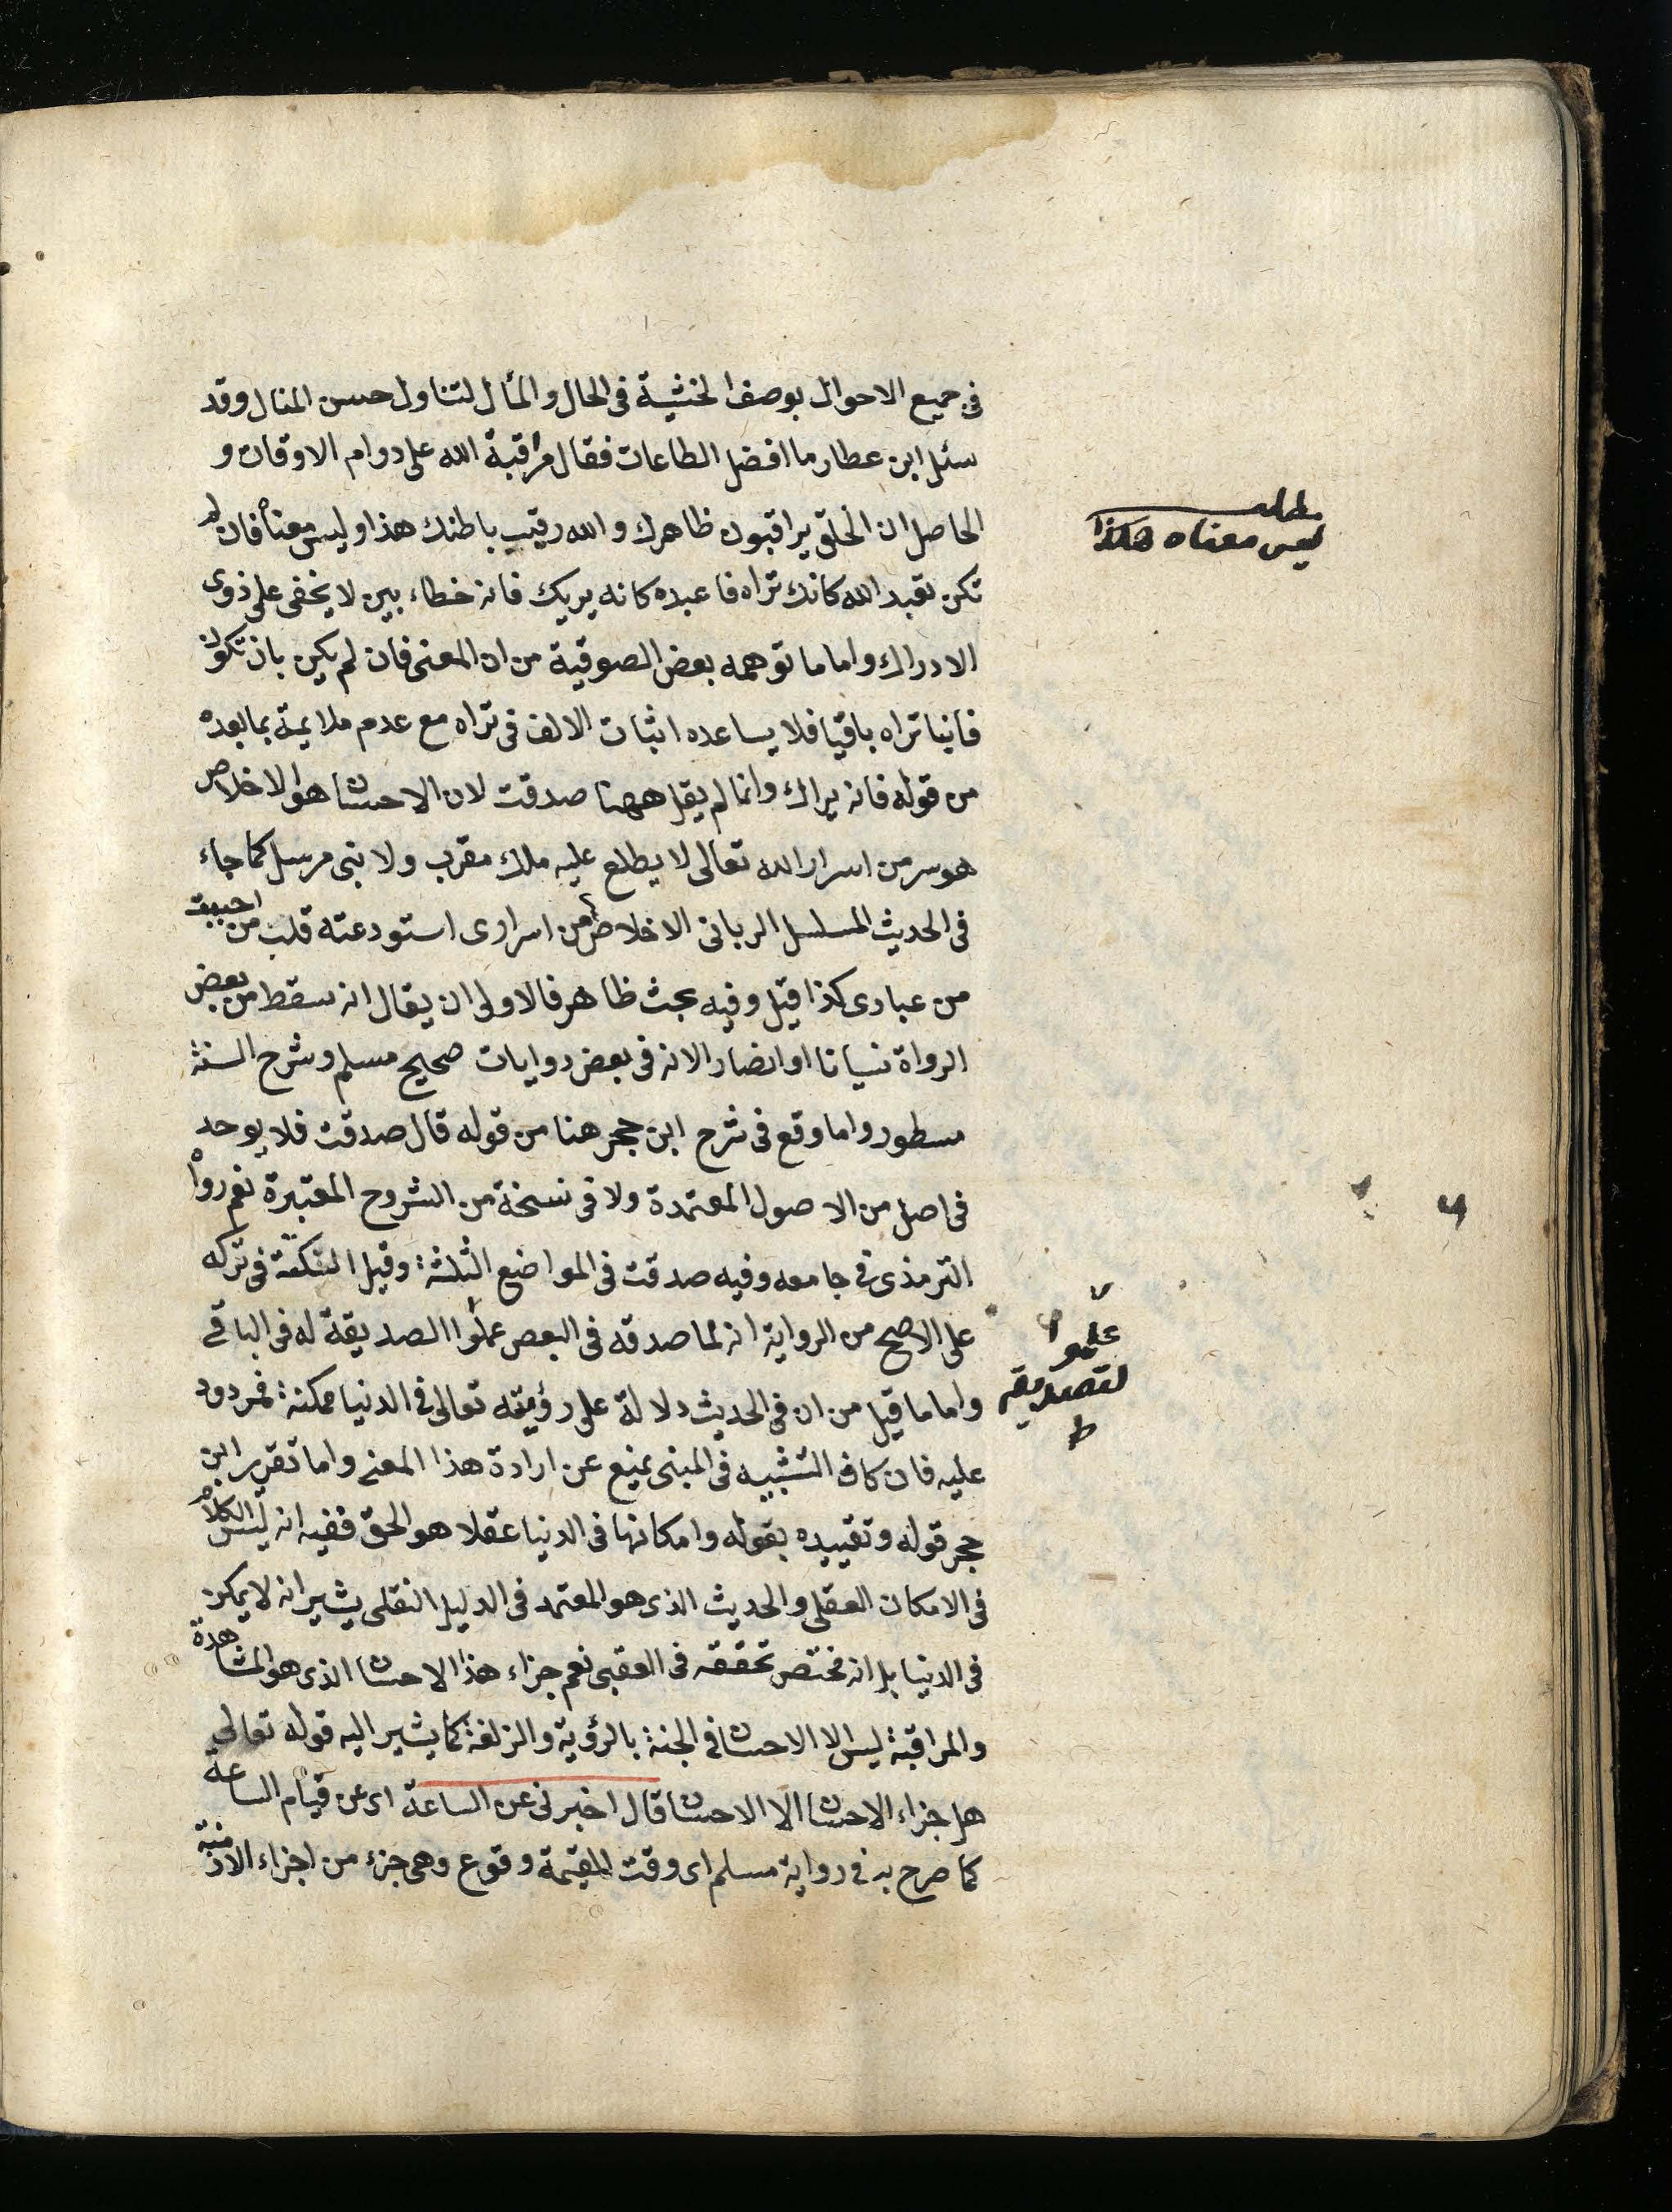 في جميع الاحوال بوصف الخشية في الحال والمأل لتناول حسن المنال وقد
سئل ابن عطار ما افضل الطاعات فقال مراقبة الله على دوام الاوقات و
الحاصل ان الخلق يراقبون ظاهرك والله رقيب باطنك هذا وليس معناه فان لم
تكن تعبد الله كانك تراه فاعبده كانه يريك فانه خطاء بين لا يخفى على ذوى
الادراك واما ما توهمه بعض الصوفية من ان المعنى فان لم يكن بان تكون
فانيا تراه باقيا فلا يساعده اثبات الالف في تراه مع عدم ملايمة بما بعده
من قوله فانه يراك وانما لم يقل ههنا صدقت لان الاحسان هو الاخلاص
هو سر من اسرار الله تعالى لا يطلع عليه ملك مقرب ولا نبي مرسل كما جاء
في الحديث المسلسل الرباني الاخلاص سر من اسراري استودعته قلب من احببت
من عبادى كذا قيل وفيه بحث ظاهر فالاولى ان يقال انه سقط من بعض
الرواة نسيانا او اختصارا لانه في بعض روايات صحيح مسلم وشرح السنة
مسطور واما وقع في شرح ابن حجر هنا من قوله قال صدقت فلا يوجد
في اصل من الاصول المعتمدة ولا في نسخة من الشروح المعتبرة نعم رواه
الترمذى في جامعه وفيه صدقت في المواضع الثلثة وقيل النكتة في تركه
على الاصح من الرواية انه لما صدقه في البعض علموا الصديقة له في الباقي
واما ما قيل من ان في الحديث دلالة على رؤيته تعالى في الدنيا ممكنة فمردود
عليه فان كاف التشبيه في المبنى يمنع عن ارادة هذا المعنى واما تقرير ابن
حجر قوله وتقييده بقوله وامكانها في الدنيا عقلا هو الحق ففيه انه ليس الكلام
في الامكان العقلي والحديث الذى هو المعتمد في الدليل النقلى يشير انه لا يمكن
في الدنيا بل انه مختص تحققه في العقبى نعم جزاء هذا الاحسان الذى هو المشاهدة
والمراقبة ليس الا الاحسان في الجنة بالرؤية والزلفة كما يشير اليه قوله تعالى
هل جزاء الاحسان الا الاحسان قال اخبرني عن الساعة اى عن قيام الساعة
كما صرح به في رواية مسلم اى وقت القيمة وقوع وهى جزء من اجزاء الازمنة
مطلب
ليس معناه هكذا
علموا
لتصديقه
ط